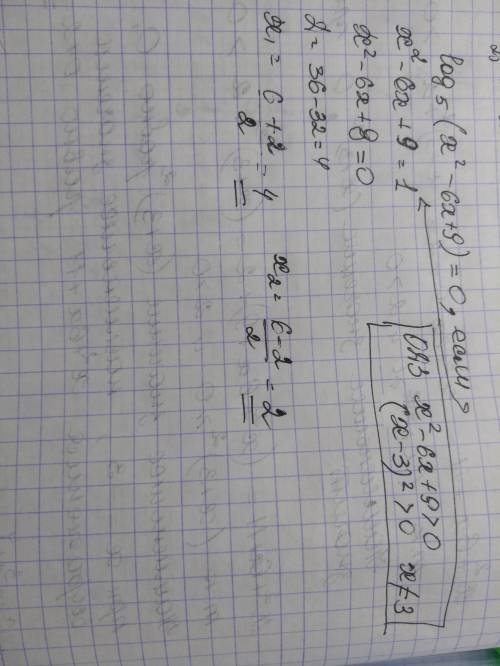 log₅(x² - 6x + 9) = 0, если
x² - 6x + 9 = 1
x² - 6x + 8 = 0
Д = 36 - 32 = 4
x₁ = (6 + 2)/2 = 4    x₂ = (6 - 2)/2 = 2
ОДЗ x² - 6x + 9 > 0
(x - 3)² > 0    x ≠ 3